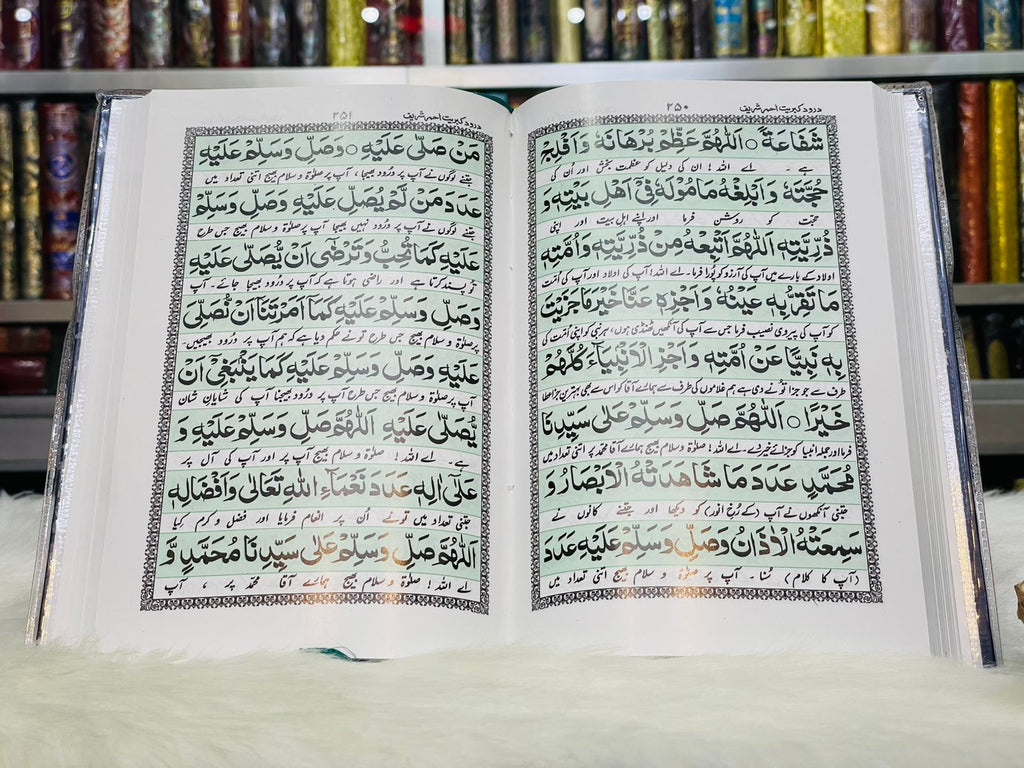 درود کبریت احمر شریف ۲۵۰
شَفَاعَةً ○ اَللّٰهُمَّ عَظِّمْ بُرْهَانَهٗ وَاَفْلِجْ
ہے ۔ اے اللہ ! ان کی دلیل کو عظمت بخش اور اُن کی
حُجَّتَهٗ وَاَبْلِغْهُ مَاْمُوْلَهٗ فِیْۤ اَهْلِ بَیْتِهٖ وَ
حجّت کو روشن فرما اور اپنے اہل بیت اور اپنی
ذُرِّیَّتِهٖ اَللّٰهُمَّ اَتْبِعْهُ مِنْ ذُرِّیَّتِهٖ وَاُمَّتِهٖ
اولاد کے بارے میں آپ کی آرزو کو پُورا فرما۔ اے اللہ! آپ کی اولاد اور آپ کی اُمّت
مَا تَقَرُّ بِهٖ عَیْنُهٗ وَاجْزِهٖ عَنَّا خَیْرَ مَا جَزَیْتَ
کو آپ کی پیروی نصیب فرما جس سے آپ کی آنکھیں ٹھنڈی ہوں، ہر نبی کو اپنی اُمّت کی
بِهٖ نَبِیًّا عَنْ اُمَّتِهٖ وَاجْزِ الْاَنْبِیَآءَ كُلَّهُمْ
طرف سے جو جزا تُو نے دی ہے ہم غلاموں کی طرف سے ہمارے آقا کو اس سے بھی بہترین جزا عطا
خَیْرًا ○ اَللّٰهُمَّ صَلِّ وَسَلِّمْ عَلٰی سَیِّدِنَا
فرما اور جملہ انبیا کو جزائے خیر دے۔ اے اللہ! صلوٰۃ وسلام بھیج ہمارے آقا محمّد پر اتنی تعداد میں
مُحَمَّدٍ عَدَدَ مَا شَاهَدَتْهُ الْاَبْصَارُ وَ
جتنی آنکھوں نے آپ (کے رُخِ انور) کو دیکھا اور جتنے کانوں نے
سَمِعَتْهُ الْاٰذَانُ وَصَلِّ وَسَلِّمْ عَلَیْهِ عَدَدَ
(آپ کا کلام) سُنا۔ آپ پر صلوٰۃ و سلام بھیج اتنی تعداد میں
درود کبریت احمر شریف ۲۵۱
مَنْ صَلّٰی عَلَیْهِ ○ وَصَلِّ وَسَلِّمْ عَلَیْهِ
جتنے لوگوں نے آپ پر درُود بھیجا ، آپ پر صلوٰۃ و سلام بھیج اتنی تعداد میں
عَدَدَ مَنْ لَّمْ یُصَلِّ عَلَیْهِ وَصَلِّ وَسَلِّمْ
جتنے لوگوں نے آپ پر درُود نہیں بھیجا آپ پر صلوٰۃ و سلام بھیج جس طرح
عَلَیْهِ كَمَا تُحِبُّ وَتَرْضٰۤی اَنْ یُّصَلّٰی عَلَیْهِ
تُو پسند کرتا ہے اور راضی ہوتا ہے کہ آپ پر درُود بھیجا جائے۔ آپ
وَصَلِّ وَسَلِّمْ عَلَیْهِ كَمَاۤ اَمَرْتَنَاۤ اَنْ نُّصَلِّیَ
پر صلوٰۃ و سلام بھیج جس طرح تونے حکم دیا ہے کہ ہم آپ پر درُود بھیجیں۔
عَلَیْهِ وَصَلِّ وَسَلِّمْ عَلَیْهِ كَمَا یَنْۢبَغِیْۤ اَنْ
آپ پر صلوٰۃ و سلام بھیج جس طرح آپ پر درُود بھیجنا آپ کی شایانِ شان
یُّصَلّٰی عَلَیْهِ اَللّٰهُمَّ صَلِّ وَسَلِّمْ عَلَیْهِ وَ
ہے ۔ اے اللہ ! صلوٰۃ و سلام بھیج آپ پر اور آپ کی آل پر
عَلٰۤی اٰلِهٖ عَدَدَ نَعْمَآءِ اللّٰهِ تَعَالٰی وَاَفْضَالِهٖ
جتنی تعداد میں تونے اُن پر انعام فرمایا اور فضل و کرم کیا
اَللّٰهُمَّ صَلِّ وَسَلِّمْ عَلٰی سَیِّدِنَا مُحَمَّدٍ وَّ
اے اللہ ! صلوٰۃ و سلام بھیج ہمارے آقا محمّد پر ، آپ